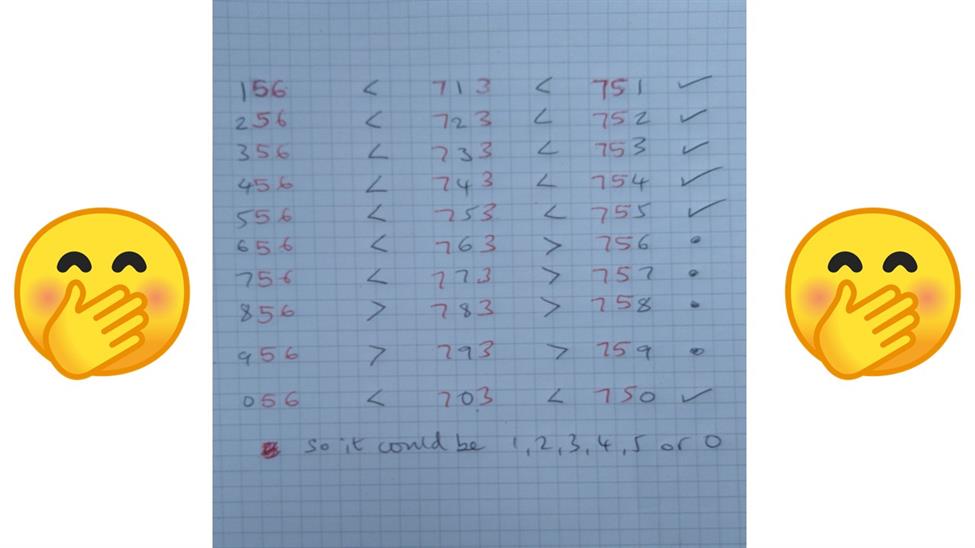 156 < 713 < 751 ✓
256 < 723 < 752 ✓
356 < 733 < 753 ✓
456 < 743 < 754 ✓
556 < 753 < 755 ✓
656 < 763 > 756 •
756 < 773 > 757 •
856 > 783 > 758 •
956 > 793 > 759 •
056 < 703 < 750 ✓
so it could be 1, 2, 3, 4, 5 or 0